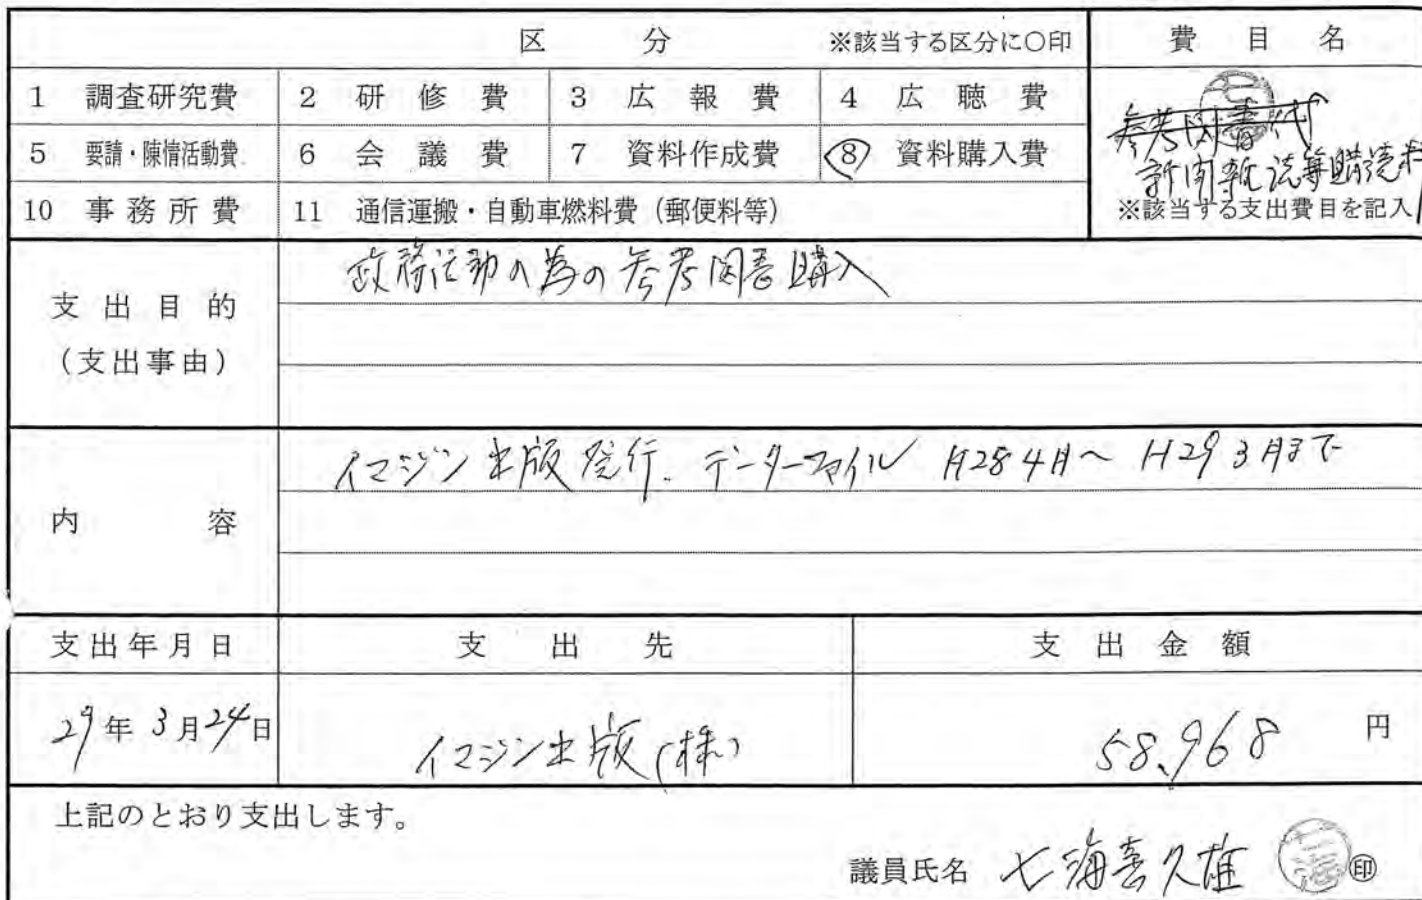 区 分 ※該当する区分に○印 費 目 名
1 調査研究費 2 研 修 費 3 広 報 費 4 広 聴 費
参考図書代
5 要請・陳情活動費 6 会 議 費 7 資料作成費 8 資料購入費
新聞雑誌等購読料
10 事 務 所 費 11 通信運搬・自動車燃料費（郵便料等）
※該当する支出費目を記入
支 出 目 的
（支出事由）
政務活動の為の参考図書購入
内 容
イマジン出版発行. データーファイル H28 4月〜 H29 3月まで
支出年月日 支 出 先 支 出 金 額
29年 3月24日 イマジン出版(株) 58,968 円
上記のとおり支出します。
議員氏名 七海喜久雄 七海 ㊞